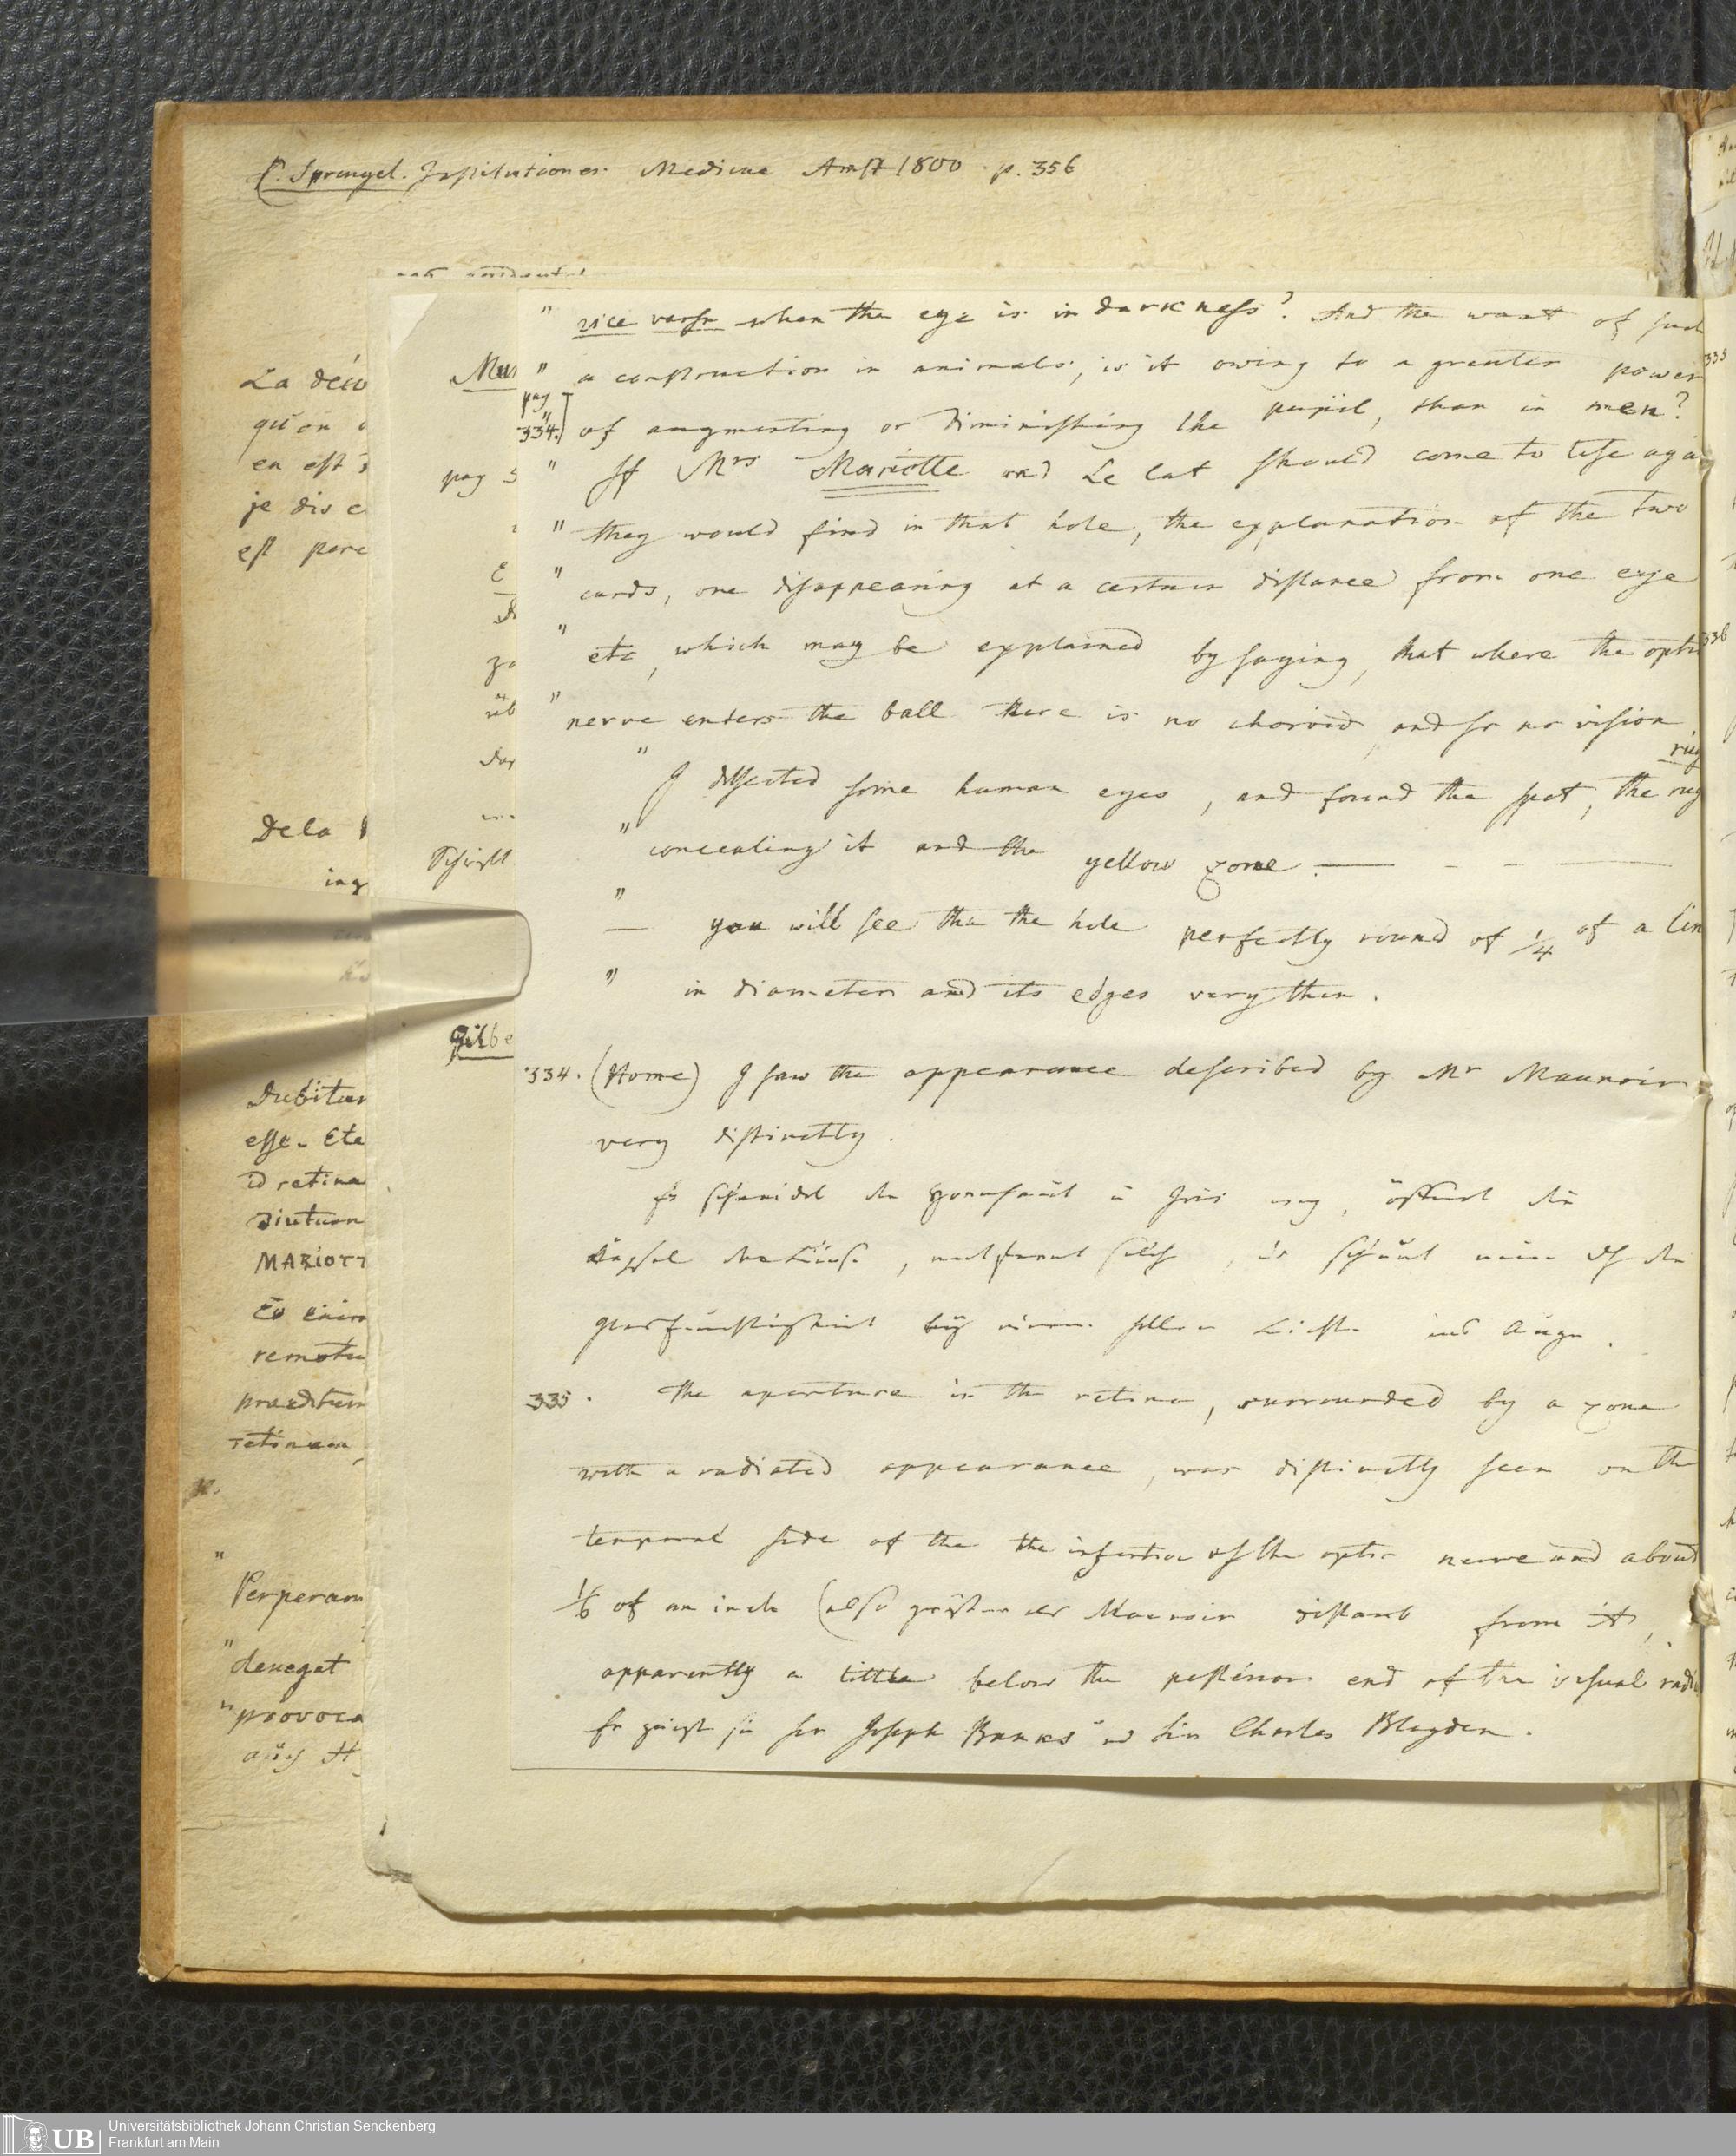 C. Sprengel. Institutiones Medicae Amst 1800 p. 356
" vice versa when the eye is in darkness? And the want of such
" a construction in animals, is it owing to a greater power
pag 334. of augmenting or diminishing the pupil, than in men?
" If Mrs Mariotte and Le Cat should come to life aga
" they would find in that hole, the explanation of the two
" cards, one disappearing at a certain distance from one eye
" etc, which may be explained by saying, that where the opti
" nerve enters the ball there is no choroid, and so no vision
" I dissected some human eyes, and found the spot, the rug
" concealing it and the yellow zone. — - - —
" — you will see tha the hole perfectly round of 1/4 of a lin
" in diameter and its edges very then.
334. (Home) I saw the appearance described by Mr Maunoir
very distinctly.
Er schneidet die Hornhaut u Iris weg, öffnet die
Kapsel der Linse, entfernt sich, u schaut nun dch die
Glasfeuchtigkeit bey einem hellen Lichte ins Auge.
335. The aperture in the retina, surrounded by a zone
with a radiated appearance, was distinctly seen on th
temporal side of the the insertion of the optic nerve and about
1/6 of an inch (also größer als Maunoir distant from it,
apparently a little below the posterior end of the visual radi
Er zeigt sie Sir Joseph Banks und Sir Charles Blagden.
La
qu'on
en est
je dis
est
De la
Dubitar
esse. Ete
id retina
MARIOTT
remotu
retinam
"
Perperam
"
denegat
" provoca
aus
pag
335
336